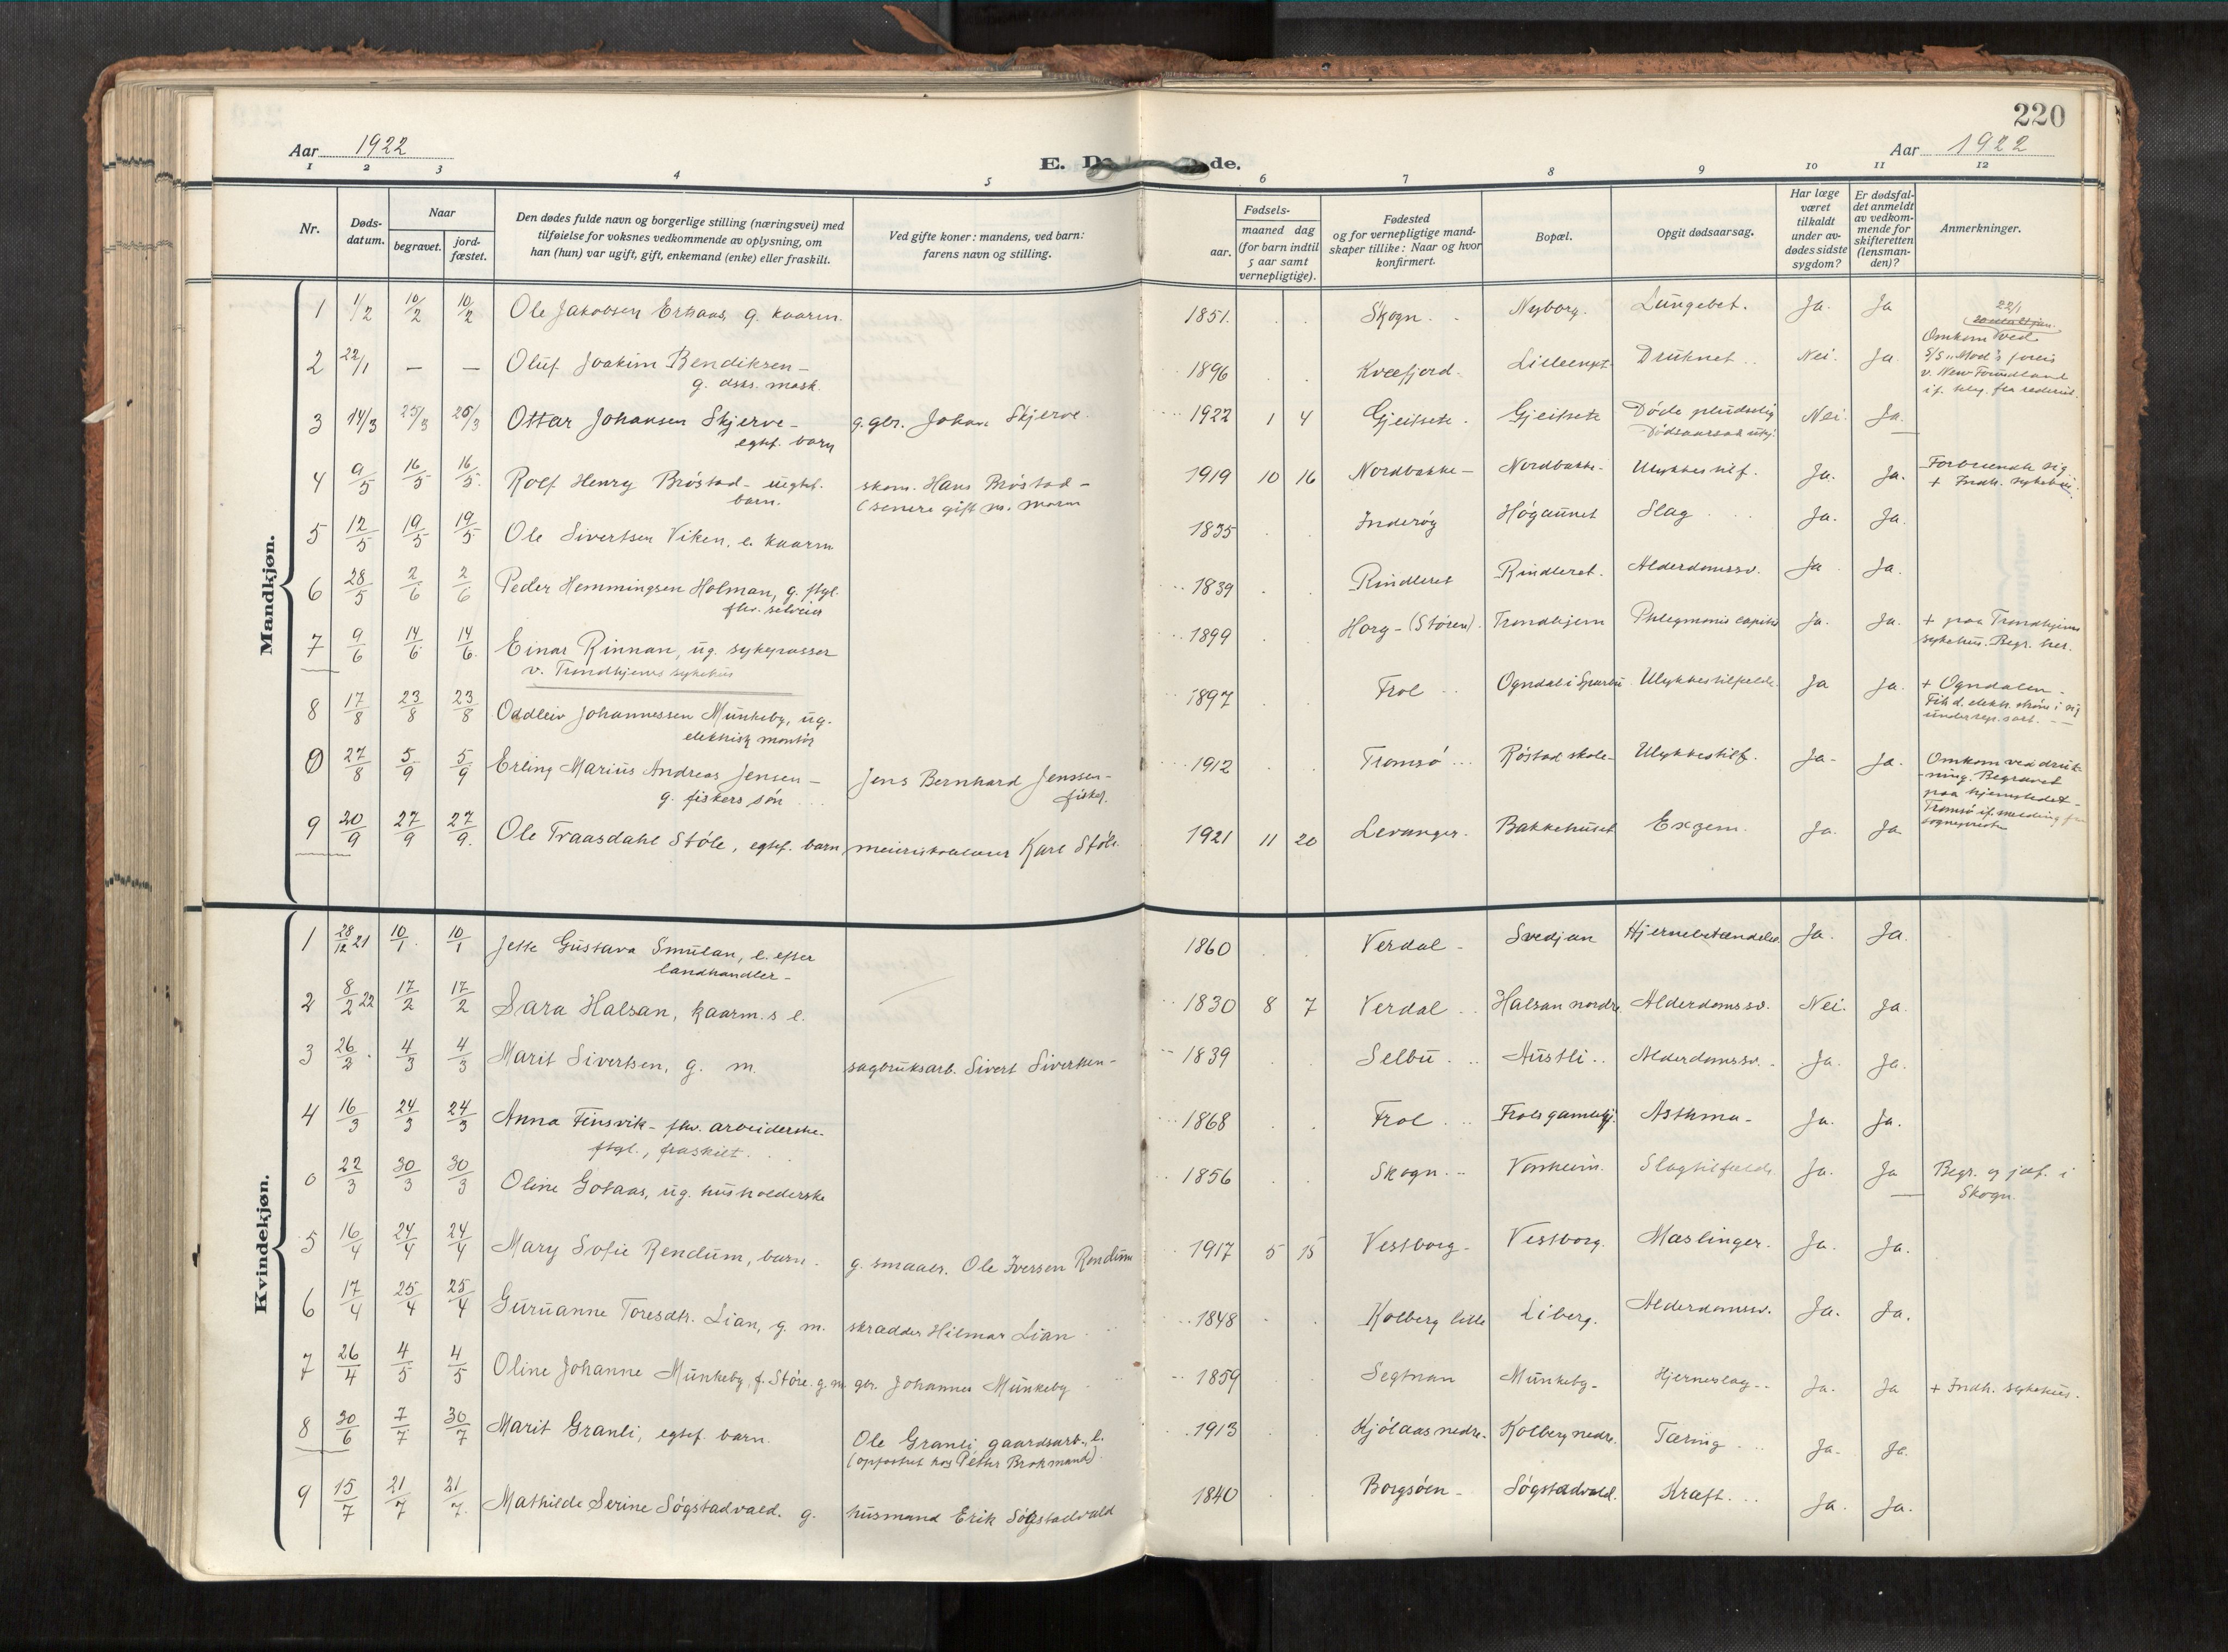 220
Aar 1922
E. D de.
Aar 1922
1 2 3 4 5 6 7 8 9 10 11 12
Nr.
Døds-
datum.
Naar
begravet.
jord-
fæstet.
Den dødes fulde navn og borgerlige stilling (næringsvei) med
tilføielse for voksnes vedkommende av oplysning, om
han (hun) var ugift, gift, enkemand (enke) eller fraskilt.
Ved gifte koner: mandens, ved barn:
farens navn og stilling.
Fødsels-
aar.
maaned dag
(for barn indtil
5 aar samt
vernepligtige).
Fødested
og for vernepligtige mand-
skaper tillike: Naar og hvor
konfirmert.
Bopæl.
Opgit dødsaarsag.
Har læge
været
tilkaldt
under av-
dødes sidste
sygdom?
Er dødsfal-
det anmeldt
av vedkom-
mende for
skifteretten
(lensman-
den)?
Anmerkninger.
Mandkjøn.
1 1/2 10/2 10/2 Ole Jakobsen g. kaarm. 1851. Skogn. Nyborg. Lungebet. Ja. Ja
22/1
2 22/1 — — Oluf Joakim Bendiksen - 1896 Kvæfjord. Druknet Nei. Ja. Omkom ved
g. mask. S/S "Mod"s forlis
v. New Foundland
3 14/3 25/3 25/3 Ottar Johansen Skjerve - g. gbr. Johan Skjerve. 1922 1 4 Gjeitsete. Gjeitsete Døde pludselig Nei. Ja.
egtef. barn
4 9/5 16/5 16/5 Rolf Henry Brøstad - uegtef. skom. Hans Brøstad - 1919 10 16 Nordbakke - Nordbakke. Ulykkestilf. Ja. Ja. Forbrændte sig.
barn. (senere gift m. moren + Indh. sykehus.
5 12/5 19/5 19/5 Ole Sivertsen Viken, e. kaarm 1835 Inderøy Høgaunet Slag Ja. Ja.
6 28/5 2/6 2/6 Peder Hemmingsen Holman, g. ftgl. 1839 Rindleret Rindleret. Alderdomssv. Ja Ja.
fhv. selveier
7 9/6 14/6 14/6 Einar Rinnan, ug. sykepasser 1899 Horg - (Støren). Trondhjem Phlegmonis capitis Ja. Ja. + paa Trondhjems
v. Trondhjems sykehus sykehus. Begr. her.
8 17/8 23/8 23/8 Oddleiv Johannessen Munkeby, ug. 1897 Frol Ogndal i Sparbu Ulykkestilfælde. Ja Ja. + Ogndalen -
elektrisk montør Fik d. elektr. strøm i sig
under rep. arb.
0 27/8 5/9 5/9 Erling Marius Andreas Jensen - Jens Bernhard Jenssen - 1912 Tromsø Røstad skole - Ulykkestilf. Ja - Ja. Omkom ved druk-
g. fiskers søn fisker. ning. Begravet
paa hjemstedet -
Tromsø if. melding fra
sogneprest
9 20/9 27/9 27/9. Ole Traasdahl Støle, egtef. barn meieriskolelærer Karl Støle. 1921 11 20 Levanger. Bakkehuset Exzem. Ja. Ja
Kvindekjøn.
1 28/12 21 10/1. 10/1 Jette Gustava Smulan, e. efter 1860 Verdal - Svedjan Hjernebetændelse. Ja. Ja.
landhandler -
2 8/2 22 17/2 17/2 Sara Halsan, kaarm.s e. 1830 8 7 Verdal Halsan nordre Alderdomssv. Nei. Ja.
3 26/2. 4/3 4/3 Marit Sivertsen, g. m. sagbruksarb. Sivert Sivertsen - 1839 Selbu Austli Alderdomssv. Ja. Ja.
4 16/3 24/3 24/3 Anna Finsvik - fhv. arbeiderske. 1868 Frol Frols gamlehj. Asthma - Ja. Ja.
ftgl., fraskilt.
0 22/3 30/3 30/3 Oline Gotaas, ug. husholderske 1856 Skogn Slagtilfælde. Ja. Ja Begr. og jof. i
Skogn.
5 16/4 24/4 24/4 Mary Sofie Rendum, barn. g. smaabr. Ole Iversen Rendum 1917 5 15 Vestborg - Vestborg. Mæslinger. Ja. Ja.
6 17/4 25/4 25/4 Guruanne Toresdtr. Lian, g. m. skrædder Hilmar Lian 1848 Kolberg lille Liberg. Alderdomssv. Ja. Ja.
7 26/4 4/5 4/5 Oline Johanne Munkeby, f. Støre. g. m. gbr. Johannes Munkeby 1859 Segtnan Munkeby - Hjerneslag - Ja. Ja + Indh. sykehus.
8 30/6 7/7 30/7 Marit Granli, egtef. barn. Ole Granli, gaardsarb., e. 1913 Kjølaas nedre. Kolberg nedre. Tæring Ja. Ja.
(opfostret hos Petter Brokmand).
9 15/7 21/7 21/7. Mathilde Serine Søgstadvald. g. husmand Erik Søgstadvald 1840 Borgsøen - Søgstadvald. Kræft. Ja. Ja.